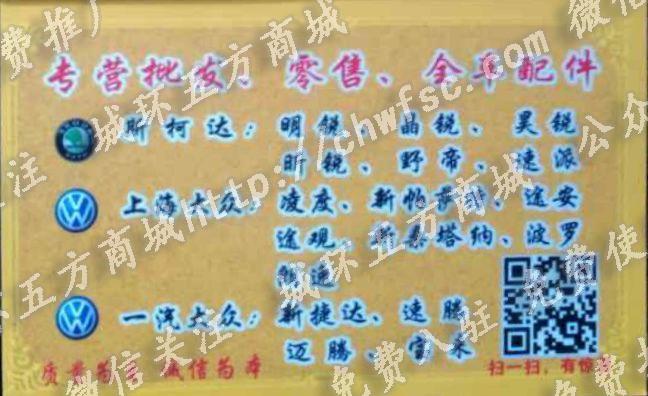 专营批发、零售、全车配件
斯柯达：明锐、晶锐、昊锐
昕锐、野帝、速派
上海大众：凌度、新帕萨特、途安
途观、新桑塔纳、波罗
朗逸
一汽大众：新捷达、速腾
迈腾、宝来
质量为 诚信为本
扫一扫，有惊
城环五方商城http://chwfsc.com/
微信关注 城环五方商城 免费使
免费入驻
免费推广
微信公众